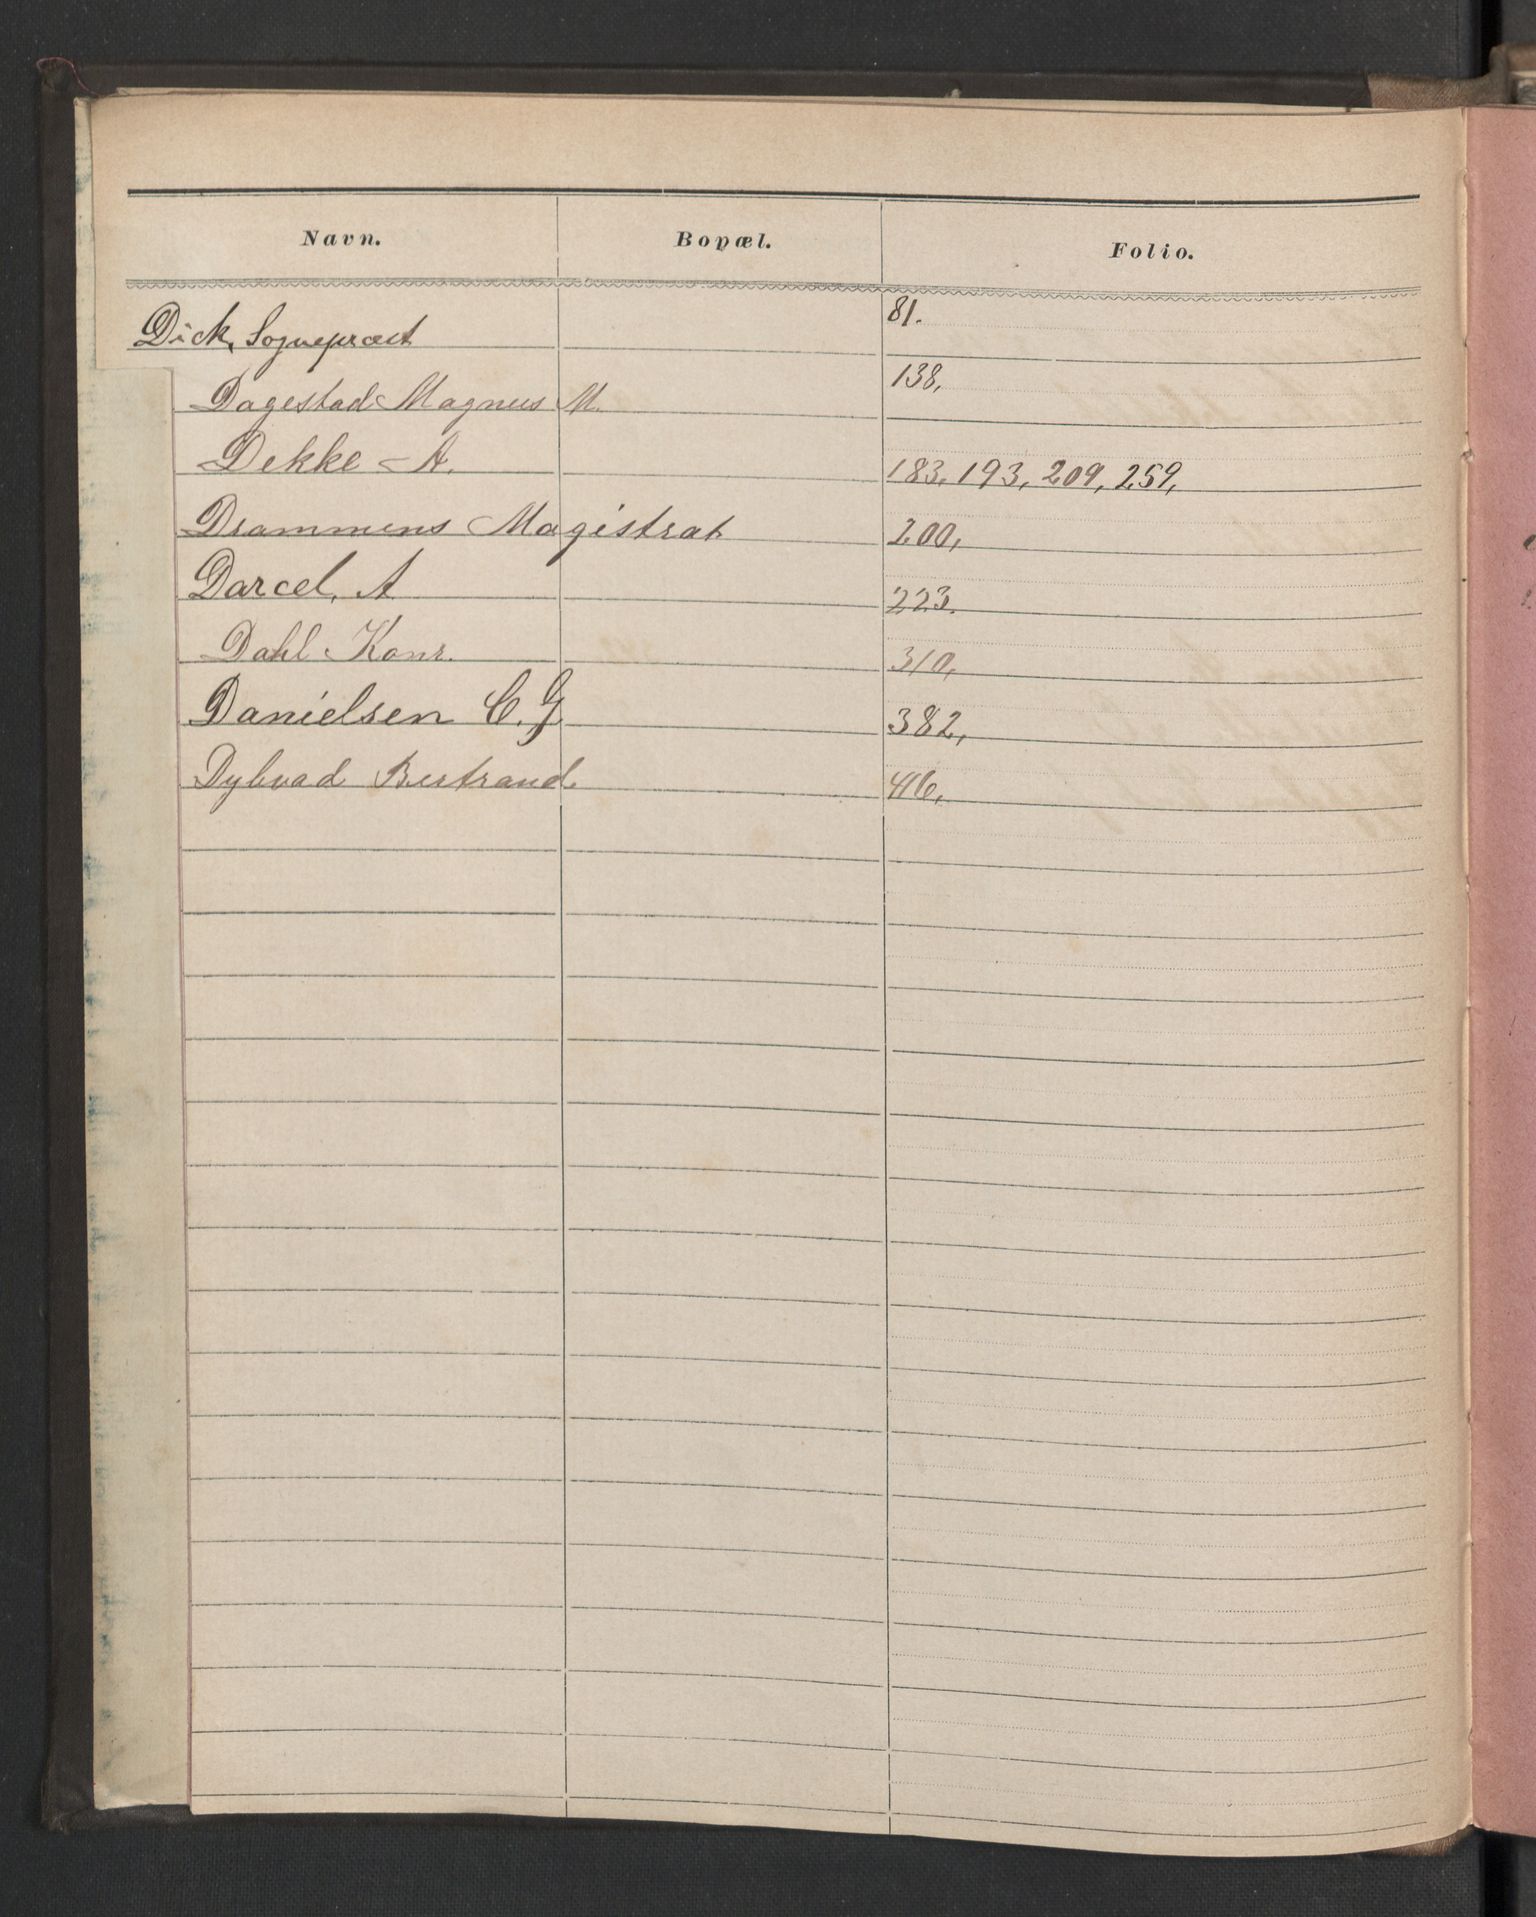 Navn. Bopæl. Folio.
Dick, Sognepræst 81.
Dagestad Magnus M. 138,
Dekke A. 183, 193, 209, 259,
Drammens Magistrat 200,
Darcel, A 223.
Dahl Konr. 310,
Danielsen C. G 382,
Dybvad Bertrand. 416,